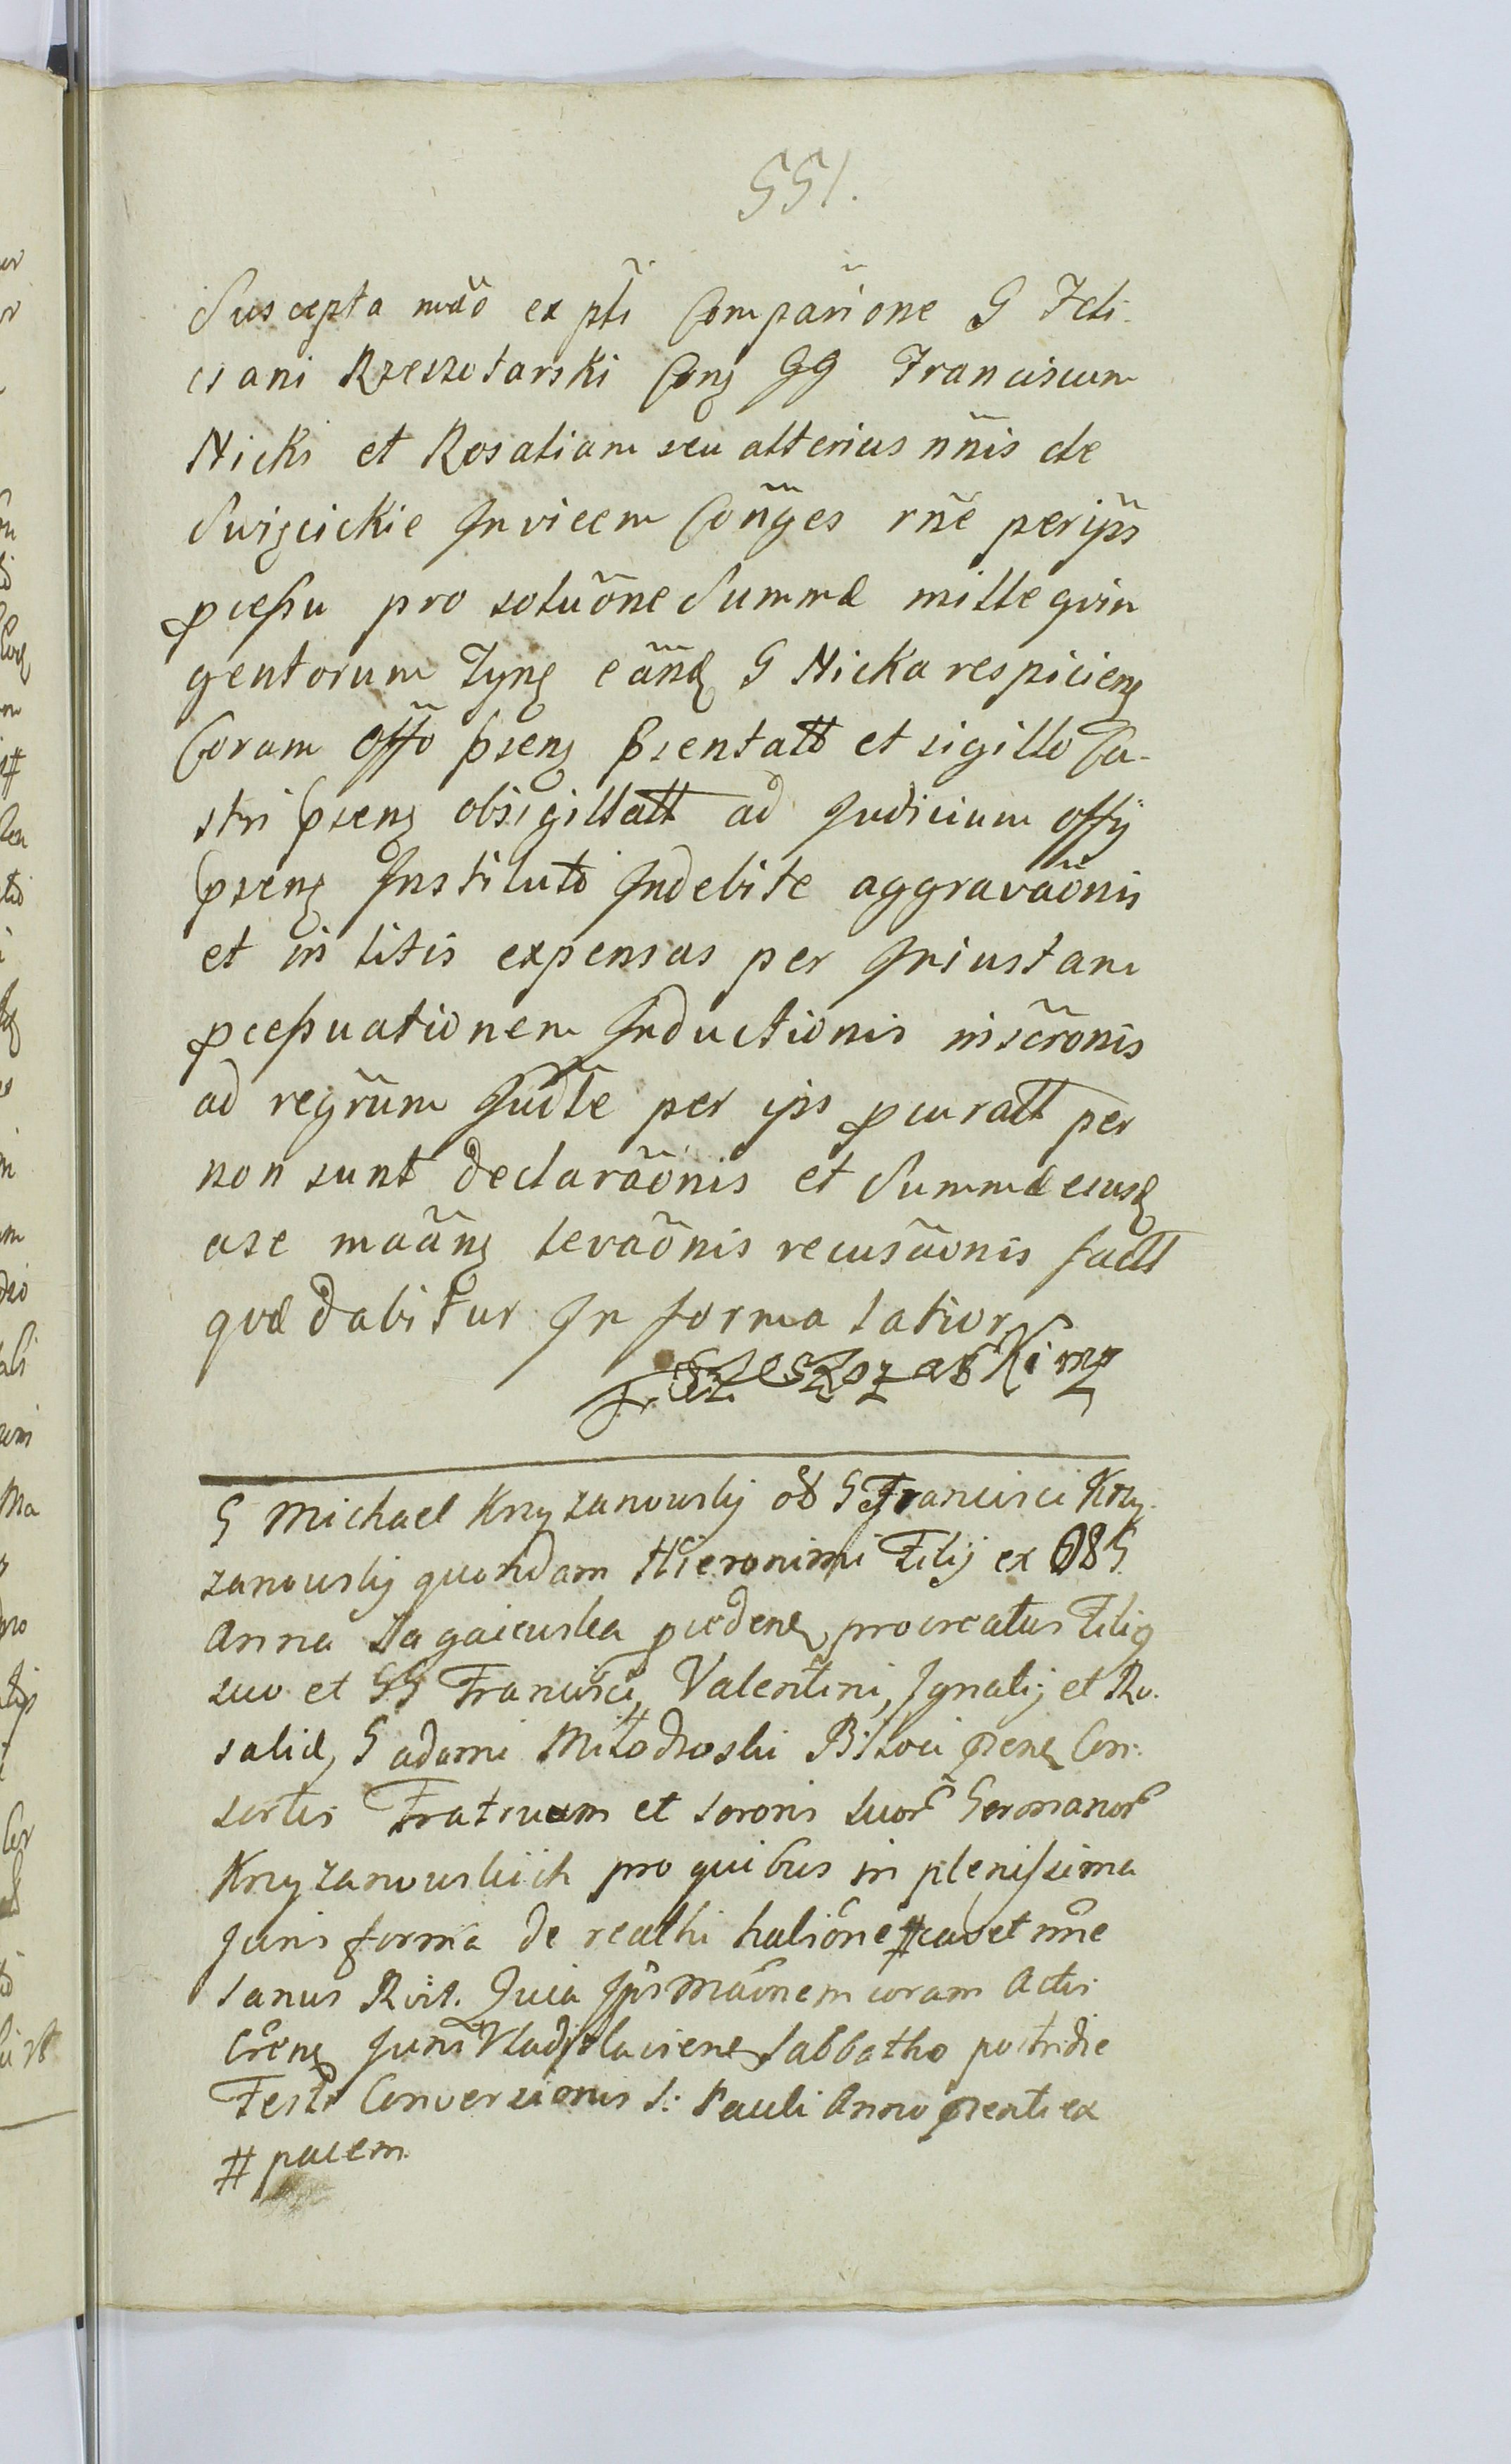 551.
Suscepta mãõ ex pti Comparĩone G Feli-
ciani Rzeszotarski Conȝ GG Franciscum
Nicki et Rosaliam seu alterius nñis de
Swięcickie Invicem Coñges rñe per ips
pcessu pro solũone Summæ mille quin
gentorum Tynȝ eãnd G Nicka respicienȝ
Coram Offo psenȝ psentatt et sigillo Ca-
stri psenȝ obsigillatt ad Judicium offij
psenȝ Instituti Indebite aggravãonis
et in litis expensas per Iniustam
pcessuationem Inductionis inscr̃onis
ad regr̃um Judte per ips pcuratt per
non sunt declarãonis et Summæ eiusd
ase maãnȝ levãonis recusãonis factt
quæ dabitur In forma latiori
F. Rzeszotarski mp
G Michael Krzyzanowsky olb G Francisci Krzy-
zanowsky quondam Hieronimi Filij ex olb G
Anna Zagaiewska pcedenȝ procreatus Filiȝ
suo et GG Francisci, Valentini, Ignatij et Ro-
saliæ, G Adami Miłodroski psenȝ Con-
sortis Fratrum et sororis suor̃ Germanor̃
Krzyzanowskich pro quibus in plenissima
Juris forma de reathi halĩone # cavet nñe
sanus Rvit. Quia Ips Mãonem coram Actis
Cr̃enȝ Juni Vladislaviensȝ Sabbatho postridie
Festi Conversionis S: Pauli Anno psenti ex
# pacem